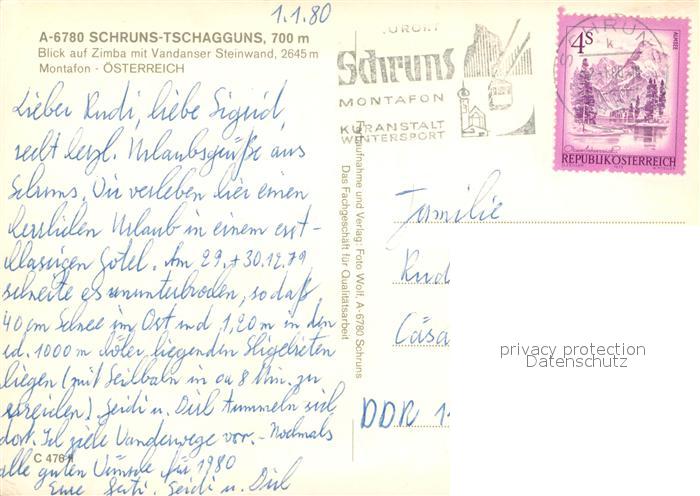 1.1.80
A-6780 SCHRUNS-TSCHAGGUNS, 700 m
Blick auf Zimba mit Vandanser Steinwand, 2645 m
Montafon - ÖSTERREICH
Lieber Rudi, liebe Sigrid,
recht herzl. Urlaubsgrüße aus
Schruns. Wir verleben hier einen
herrlichen Urlaub in einem erst-
klassigen Hotel. Am 29. + 30.12.79
schneite es ununterbrochen, so daß
40 cm Schnee im Ort und 1,20 m in den
ca. 1000 m höher liegenden Skigebieten
liegen (mit Seilbahn in ca 8 Min. zu
erreichen). Heidi u. Dirk tummeln sich
dort. Ich ziehe Wanderwege vor. - Nochmals
alle guten Wünsche für 1980
Eure Heidi u. Dirk
C 476
Farbaufnahme und Verlag: Foto Wolf, A-6780 Schruns
Das Fachgeschäft für Qualitätsarbeit
KURORT
Schruns
MONTAFON
KURANSTALT
WINTERSPORT
SCHRUNS
k
4S
ALMSEE
Oberösterreich
REPUBLIK ÖSTERREICH
Familie
Rud
Cäsa
DDR 1
privacy protection
Datenschutz